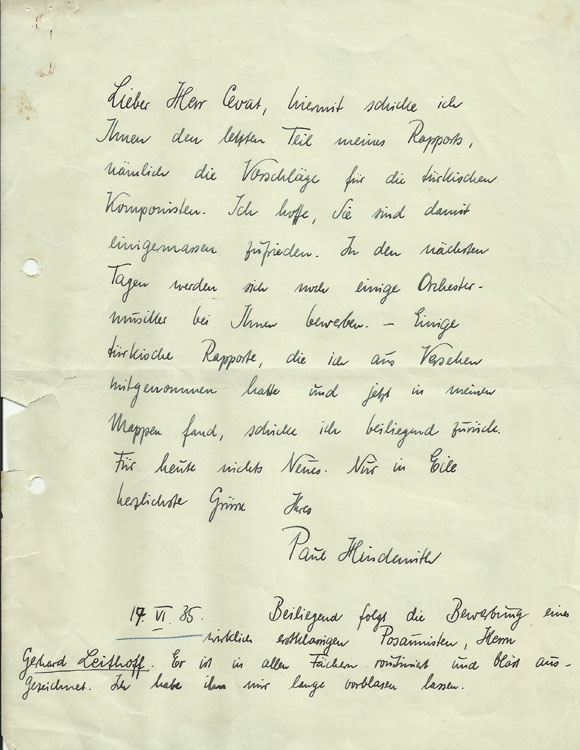 Lieber Herr Cevat, hiermit schicke ich
Ihnen den letzten Teil meines Rapports,
nämlich die Vorschläge für die türkischen
Komponisten. Ich hoffe, Sie sind damit
einigermassen zufrieden. In den nächsten
Tagen werden sich noch einige Orchester-
musiker bei Ihnen bewerben. – Einige
türkische Rapporte, die ich aus Versehen
mitgenommen hatte und jetzt in meinen
Mappen fand, schicke ich beiliegend zurück.
Für heute nichts Neues. Nur in Eile
herzlichste Grüsse Ihres
Paul Hindemith
VI. 35. Beiliegend folgt die Bewerbung eines
wirklich erstklassigen Posaunisten, Herrn
Gerhard Leithoff. Er ist in allen Fächern routiniert und bläst aus-
gezeichnet. Ich habe ihn mir lange vorblasen lassen.